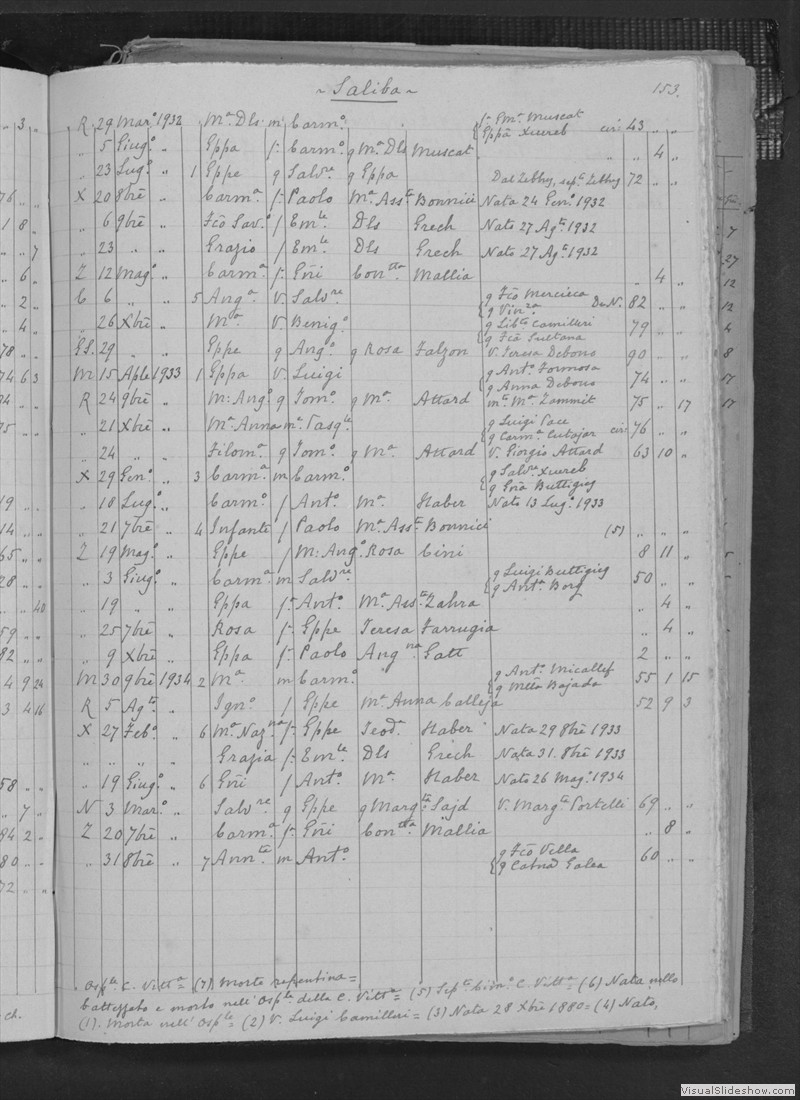 ~ Saliba ~ 153.
R 29 Mar.º 1932 Mª Dls m Carm.º { f. Mª Muscat
Eppa Xuereb cir. 43 „ „
„ 5 Giug.º „ Eppa f. Carm.º g Mª Dls Muscat „ 4 „
„ 23 Lug.º „ 1 Eppe g Salv.re g Eppa Dal Zebbug, sep.º Zebbug 72 „ „
X 20 8bre Carm.ª f. Paolo Mª Ass.ta Bonnici Nata 24 Gen.º 1932
„ 6 9bre Fcõ Sav.º f Em.le Dls Grech Nato 27 Ag.to 1932
„ 23 „ „ Grazio f Em.le Dls Grech Nato 27 Ag.to 1932
Z 12 Mag.º Carm.ª f. Gñi Con.tta Mallia „ 4 „
C 6 „ „ 5 Ang.ª v. Salv.re { g Fcõ Mercieca
g Vin.za Du N. 82 „ „
„ 26 Xbre „ Mª v. Benig.º { g Lib.to Camilleri
g Fcª Sultana 79 „ „
GS. 29 „ „ Eppe g Ang.º g Rosa Falzon v. Teresa Debono 90 „ „
M 15 Aple 1933 1 Eppa v. Luigi { g Ant.º Formosa
g Anna Debono 74 „ „
R 24 9bre „ M: Ang.º g Tom.º g Mª Attard m.to Mª Zammit 75 „ 17
„ 21 Xbre „ Mª Anna m. Pasq.le { g Luigi Pace
g Carmª Cutajar cir. 76 „ „
„ 24 „ Filom.ª g Tom.º g Mª Attard v. Giorgio Attard 63 10 „
X 29 Gen.º „ 3 Carm.ª m Carm.º { g Salv.re Xuereb
g Gñª Buttigieg
„ 18 Lug.º Carm.º f Ant.º Mª Haber Nato 13 Lug.º 1933
„ 21 7bre „ 4 Infante f Paolo Mª Ass.ta Bonnici (5) „ „ „
Z 19 Mag.º „ Eppe f M: Ang.º Rosa Cini 8 11 „
„ 3 Giug.º Carm.ª m Salv.re { g Luigi Buttigieg
g Ant.ª Borg 50 „ „
„ 19 „ „ Eppa f. Ant.º Mª Ass.ta Zahra „ 4 „
„ 25 7bre „ Rosa f. Eppe Teresa Farrugia „ 4 „
„ 9 Xbre „ Eppa f. Paolo Ang.na Gatt 2 „ „
M 30 9bre 1934 2 Mª m Carm.º { g Ant.º Micallef
g Mtta Bajada 55 1 15
R 5 Ag.to „ Ign.º f Eppe Mª Anna Calleja 52 9 3
X 27 Feb.º „ 6 Mª Naz.na f. Eppe Teod.ª Haber Nata 29 8bre 1933
„ „ „ „ Grazia f. Em.le Dls Grech Nata 31. 8bre 1933
„ 19 Giug.º „ 6 Gñi f Ant.º Mª Haber Nato 26 Mag.º 1934
N 3 Mar.º „ Salv.re g Eppe g Marg.ta Sajd v. Marg.ta Portelli 69 „ „
Z 20 7bre „ Carm.ª f. Gñi Con.tta Mallia „ 8 „
„ 31 8bre „ 7 Ann.ta m Ant.º { g Fcõ Vella
g Catnª Galea 60 „ „
Osp.le C. Vitt.ª = (7) Morte repentina =
battezzato e morto nell'Osp.le della C. Vitt.ª = (5) Sep.to Cim.º C. Vitt.ª = (6) Nata nello
(1). Morta nell'Osp.le = (2) V. Luigi Camilleri = (3) Nata 28 Xbre 1880 = (4) Nato,
VisualSlideshow.com